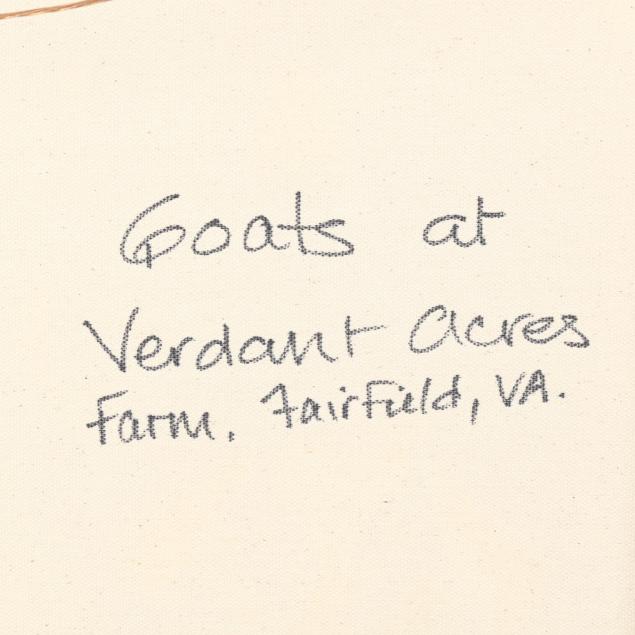 Goats at
Verdant Acres
Farm. Fairfield, VA.